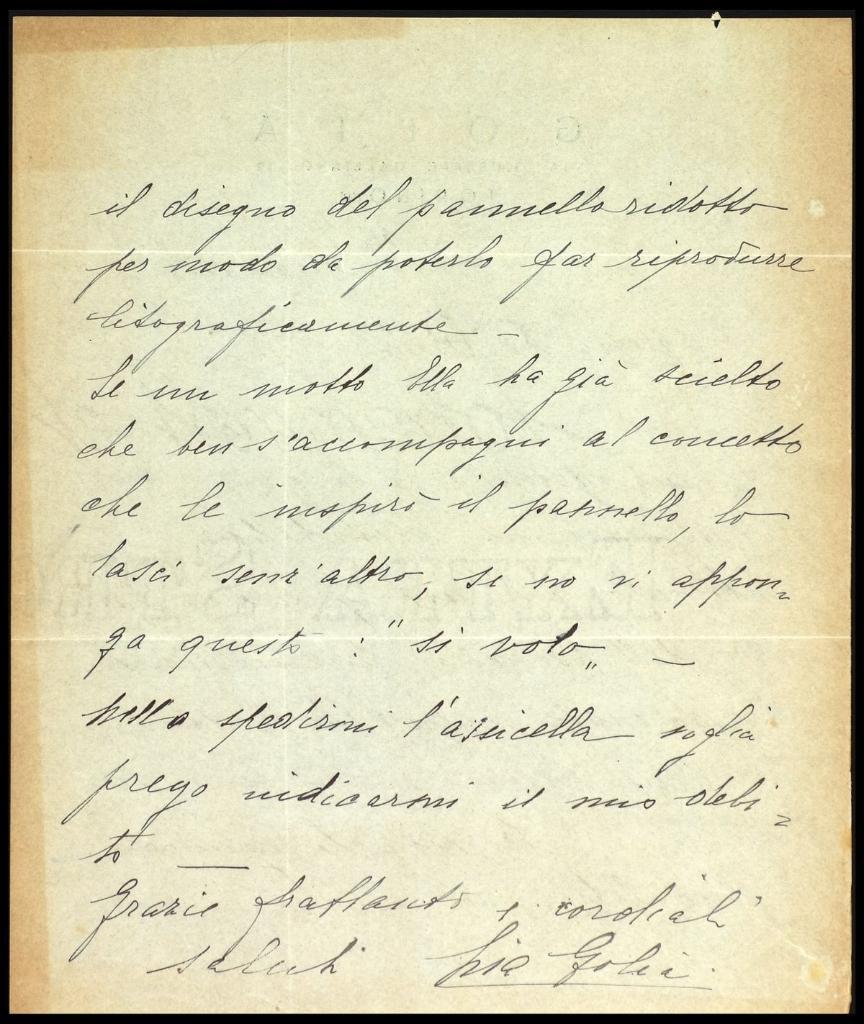 il disegno del pannello ridotto
per modo da poterlo far riprodurre
litograficamente –
Se un motto Ella ha già scielto
che ben s'accompagni al concetto
che le inspirò il pannello, lo
lasci senz'altro, se no vi appon=
ga questo : "si volo„ –
Nello spedirmi l'assicella voglia
prego indicarmi il mio debi=
to —
Grazie frattanto e cordiali
saluti Golia